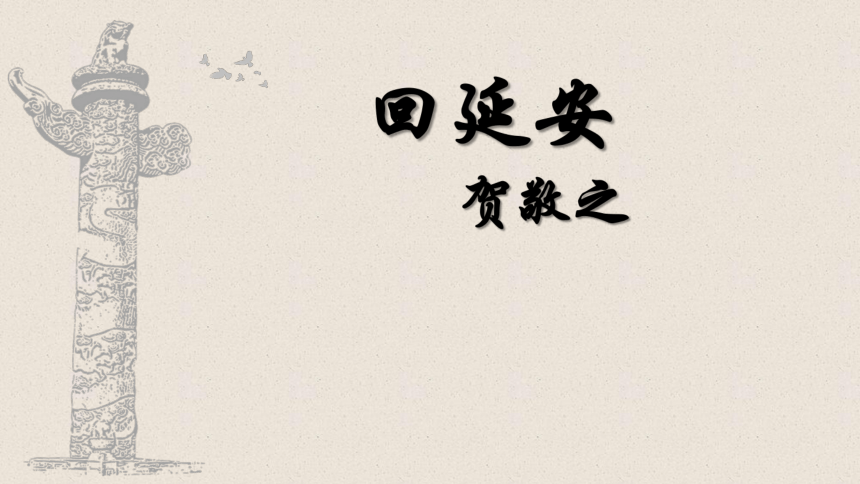 回延安
贺敬之